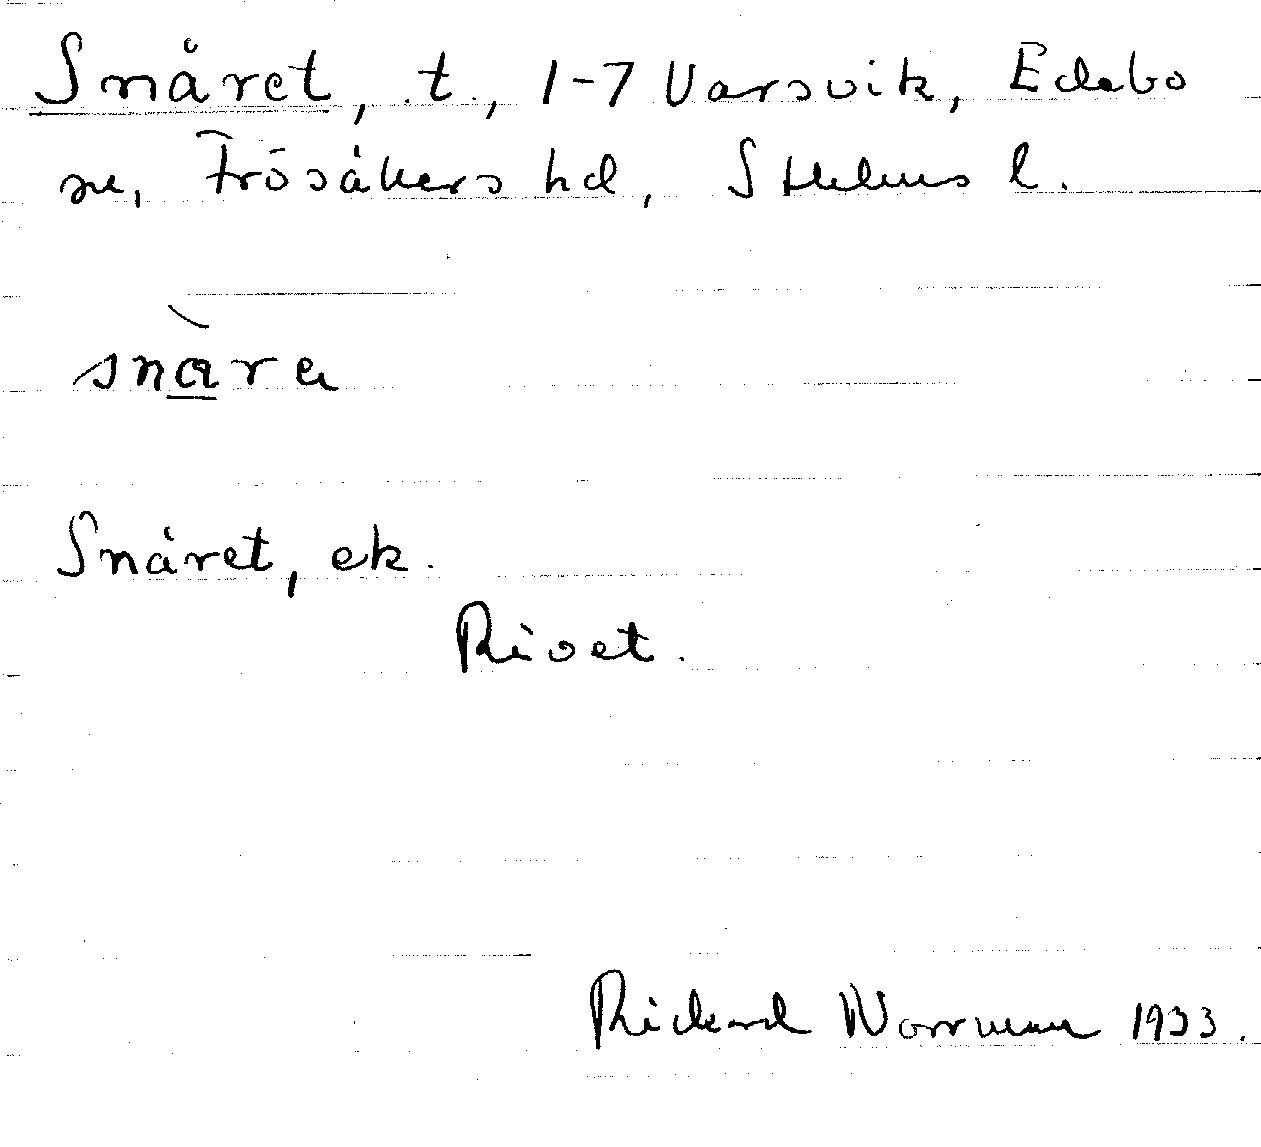 Snåret, t., 1-7 Varsvik, Edebo
sn, Frösåkers hd, Sthlms l.
snàra
Snåret, ek.
Rivet.
Rickard Norrman 1933.